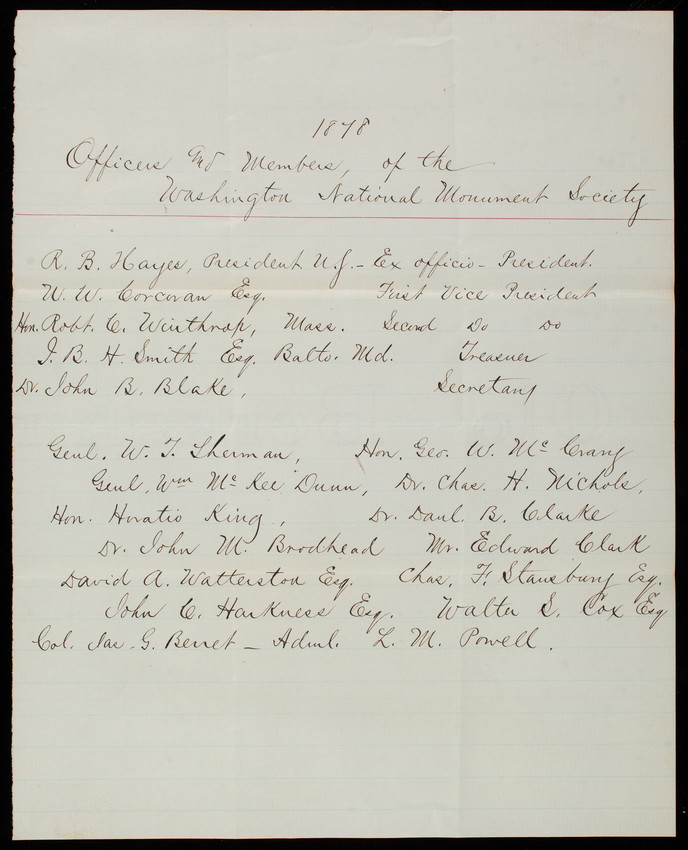 1878
Officers and Members, of the
Washington National Monument Society
R. B. Hayes, President U.S. - Ex officio - President.
W. W. Corcoran Esq. First Vice President
Hon. Robt. C. Winthrop, Mass. Second Do Do
J. B. H. Smith Esq. Balto. Md. Treasurer
Dr. John B. Blake, Secretary
Genl. W. T. Sherman, Hon. Geo. W. Mc Crary
Genl. Wm Mc Kee Dunn, Dr. Chas. H. Nichols,
Hon. Horatio King, Dr. Danl. B. Clarke
Dr. John M. Brodhead Mr. Edward Clark
David A. Watterston Esq. Chas. F. Stansbury Esq.
John C. Harkness Esq. Walter S. Cox Esq
Col. Jas. G. Berret - Adml. L. M. Powell.